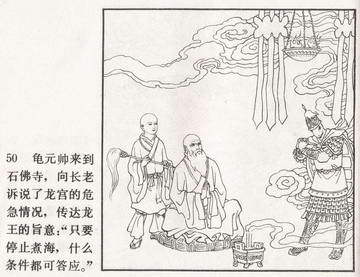 50 龟元帅来到
石佛寺，向长老
诉说了龙宫的危
急情况，传达龙
王的旨意：“只要
停止煮海，什么
条件都可答应。”